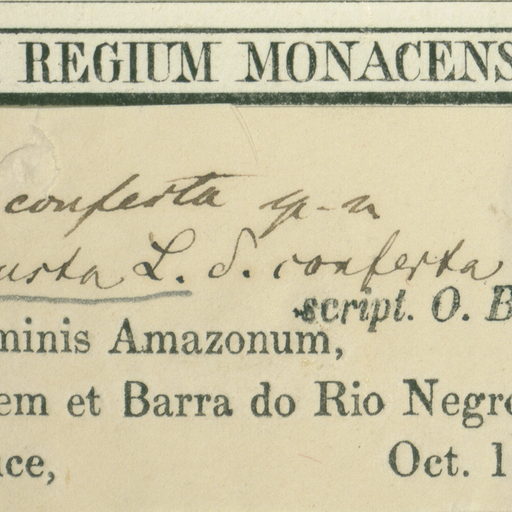 REGIUM MONACENS
conferta sp. n
usta L. δ. conferta
script. O. B
minis Amazonum,
em et Barra do Rio Negro
uce, Oct. 1